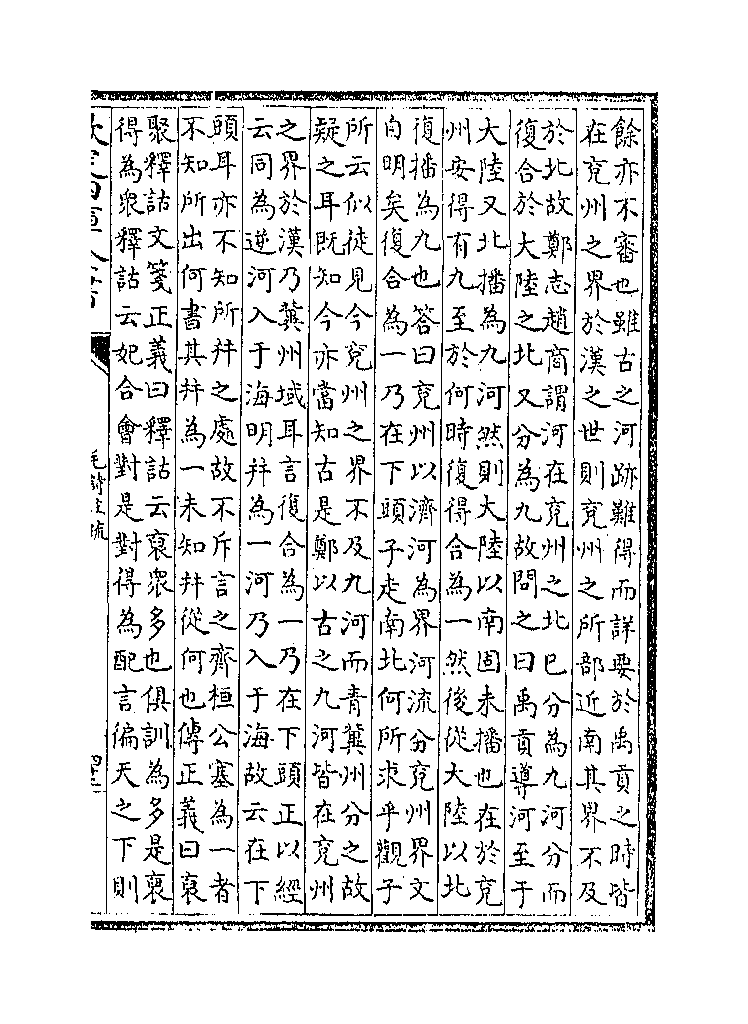 餘亦不審也雖古之河跡難得而詳要於禹貢之時皆
在兖州之界於漢之世則兖州之所部近南其界不及
於北故鄭志趙商謂河在兖州之北已分為九河分而
復合於大陸之北又分為九故問之曰禹貢導河至于
大陸又北播為九河然則大陸以南固未播也在於兖
州安得有九至於何時復得合為一然後從大陸以北
復播為九也答曰兖州以濟河為界河流分兖州界文
自明矣復合為一乃在下頭子走南北何所求乎觀子
所云似徒見今兖州之界不及九河而青冀州分之故
疑之耳既知今亦當知古是鄭以古之九河皆在兖州
之界於漢乃冀州域耳言復合為一乃在下頭正以經
云同為逆河入于海明并為一河乃入于海故云在下
頭耳亦不知所并之處故不斥言之齊桓公塞為一者
不知所出何書其并為一未知并從何也傳正義曰裒
聚釋詁文箋正義曰釋詁云裒衆多也俱訓為多是裒
得為衆釋詁云妃合會對是對得為配言徧天之下則
毛詩注疏